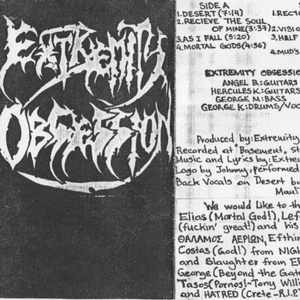 EXTREMITY
OBSESSION
SIDE A
1.DESERT (7:14)
2.RECIEVE THE SOUL
OF MINE(8:39)
3.AS I FALL (5:20)
4.MORTAL GODS(4:36)
1.REC
2.VISIO
3.HALF
EXTREMITY OBSESSIO
ANGEL B.:GUITARS
HERCULES K:GUITARS
GEORGE M:BASS
GEORGE K:DRUMS/VOC
Produced by: Extremity
Recorded at "Basement, st
Music and Lyrics by: Extre
Logo by Johnny, Performed
Back Vocals on Desert by
Man
We would like to th
Elias (Mortal God!), Lef
(fuckin' great!) and his
ΘΑΛΑΜΟΣ ΑΕΡΙΩΝ, Efthim
Costas (God!) from NIGH
and Slaughter from EP
George (Beyond the Gat
Tasos (Pornos!)-Tony Will
and HATRED (Crete-R.I.P